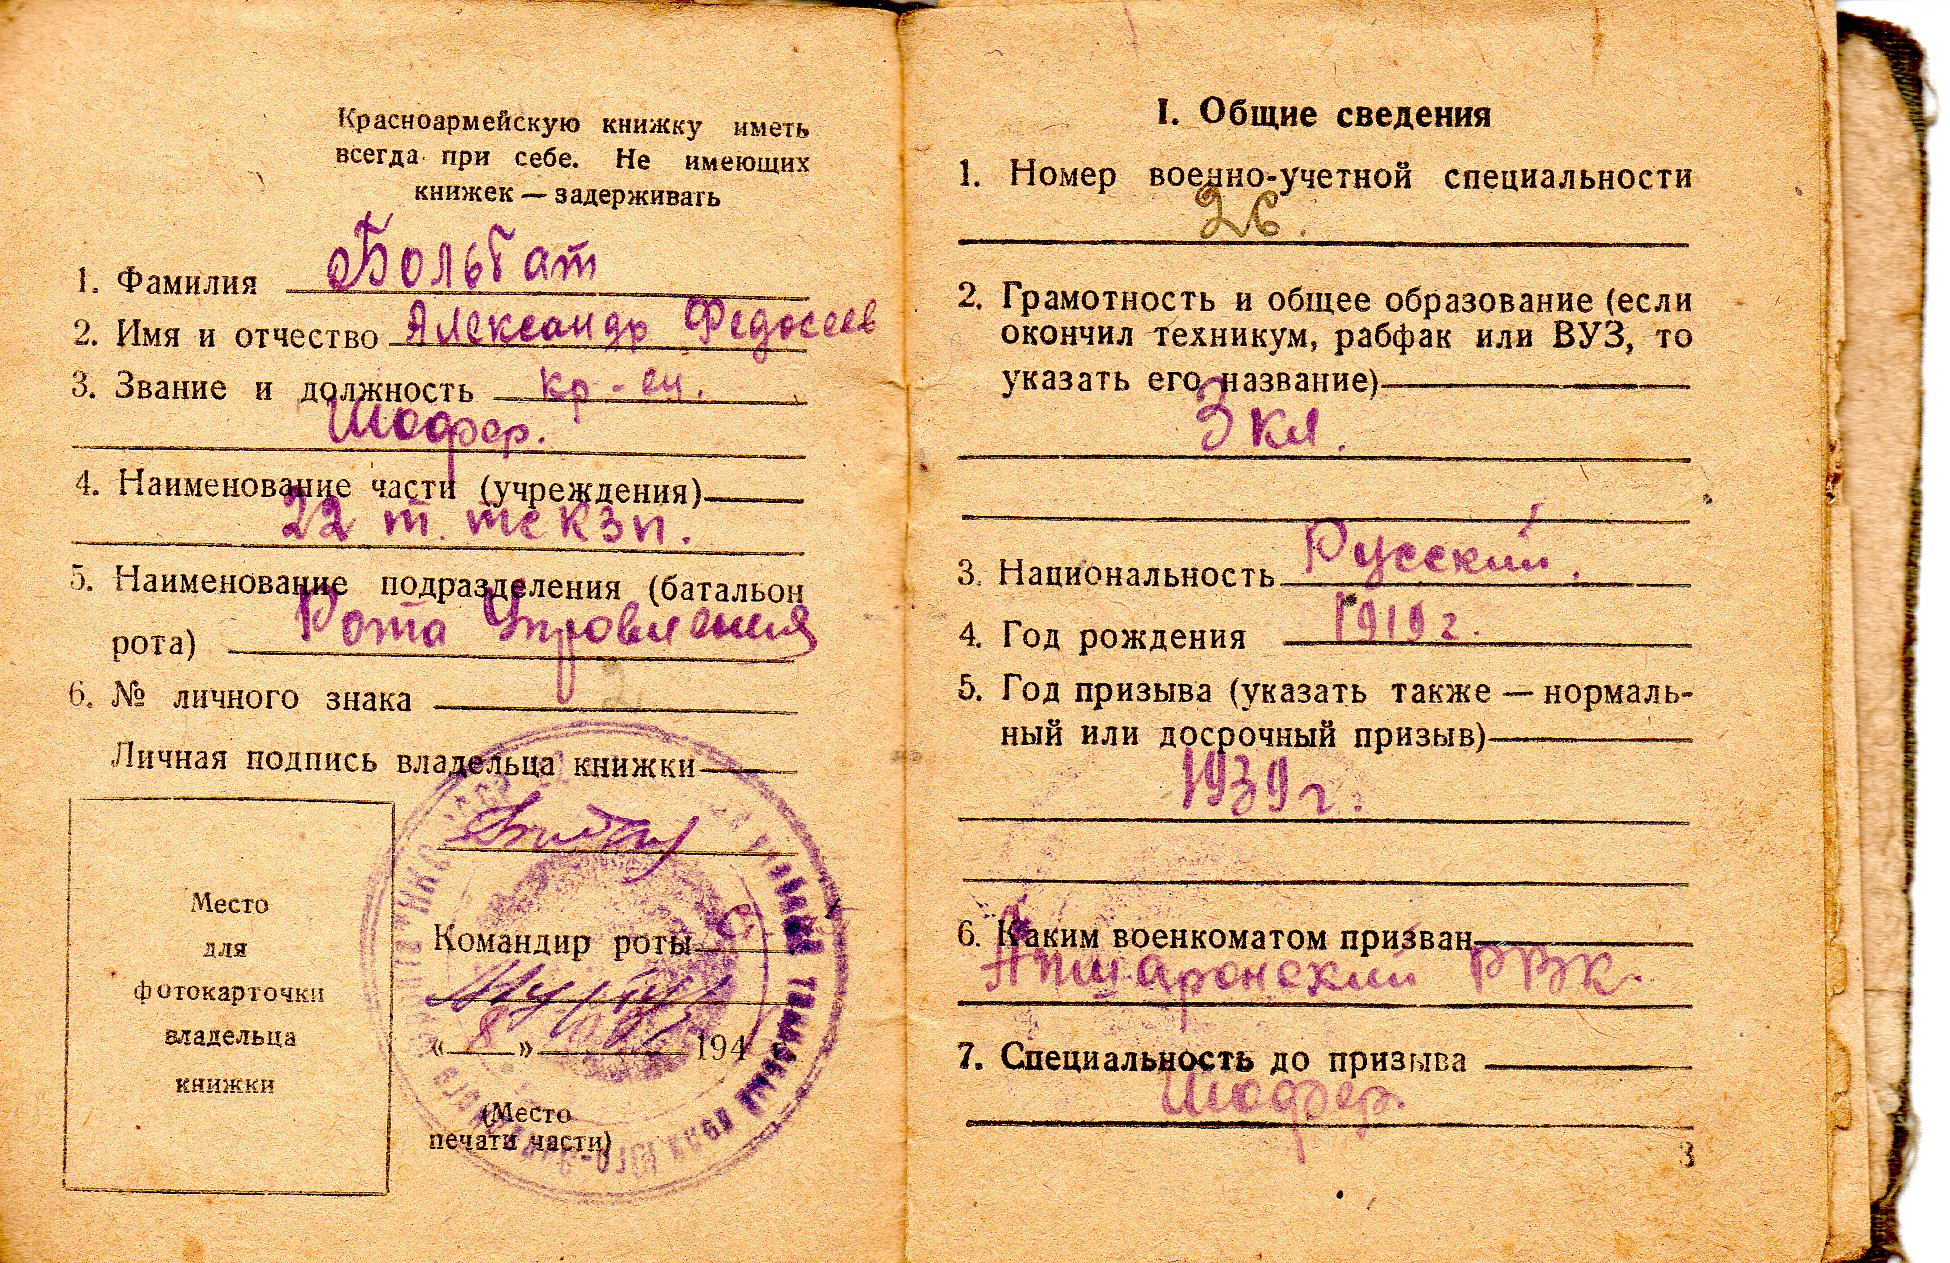 Красноармейскую книжку иметь
всегда при себе. Не имеющих
книжек — задерживать
1. Фамилия Больбат
2. Имя и отчество Александр Федосеев
3. Звание и должность кр-ец.
Шофер.
4. Наименование части (учреждения)
22 т.
5. Наименование подразделения (батальон
рота) Рота Управления
6. № личного знака 2
Личная подпись владельца книжки
Место
для
фотокарточки
владельца
книжки
Командир роты
« 8 » 194
(Место
печати части)
I. Общие сведения
1. Номер военно-учетной специальности
26.
2. Грамотность и общее образование (если
окончил техникум, рабфак или ВУЗ, то
указать его название)
3 кл.
3. Национальность Русский.
4. Год рождения 1919 г.
5. Год призыва (указать также — нормаль-
ный или досрочный призыв)
1939 г.
6. Каким военкоматом призван
Апшаронский РВК.
7. Специальность до призыва
Шофер.
3